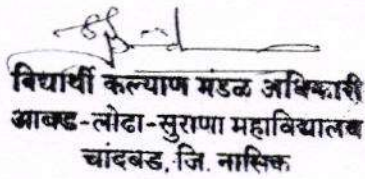 विद्यार्थी कल्याण मंडळ अधिकारी
आबड-लोढा-सुराणा महाविद्यालय
चांदवड, जि. नासिक